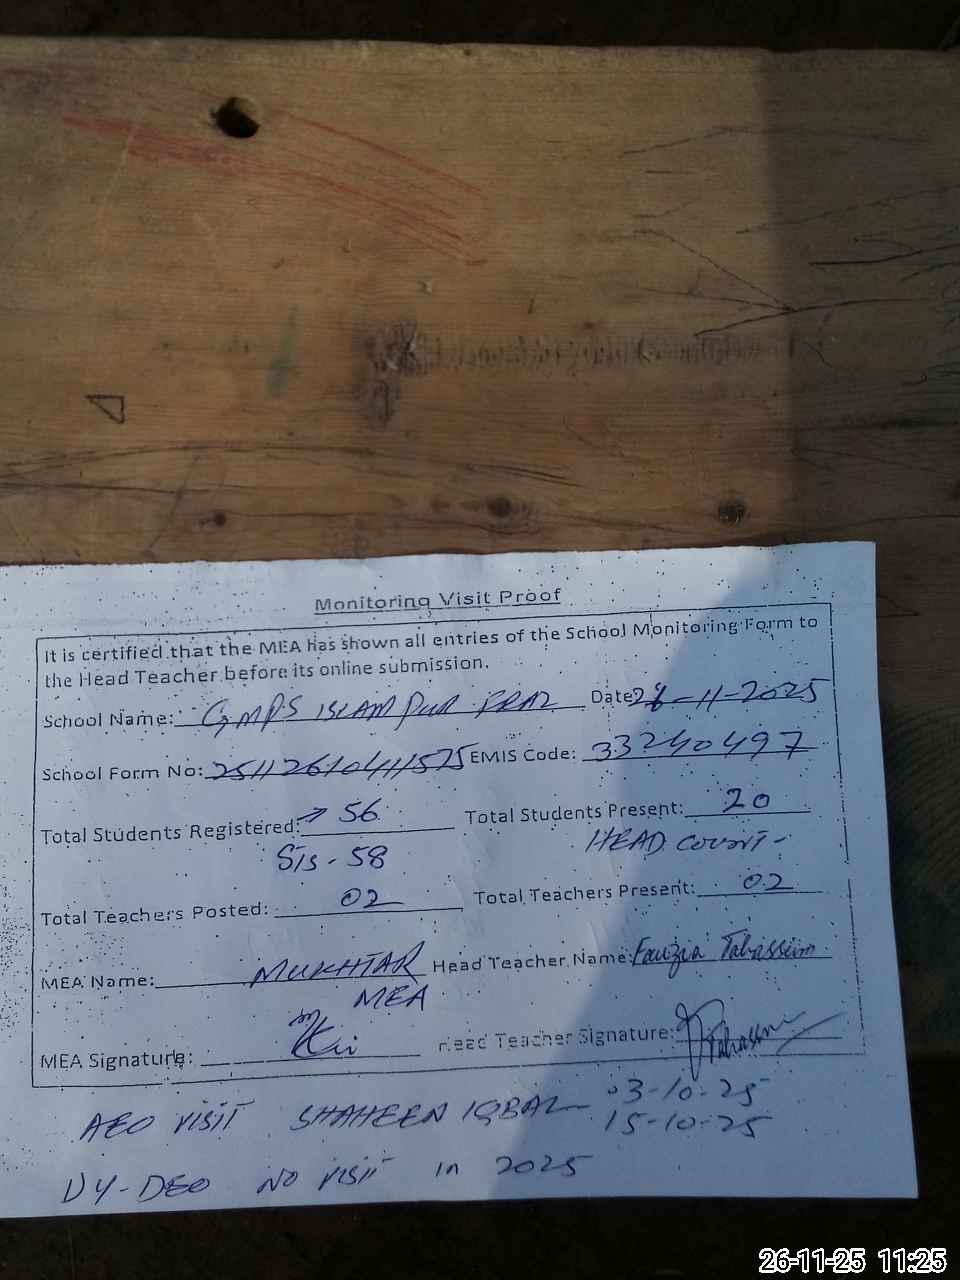 Monitoring Visit Proof
It is certified that the MEA has shown all entries of the School Monitoring Form to
the Head Teacher before its online submission.
School Name: GMPS ISLAM PUR Date 26-11-2025
School Form No: 25112610411575 EMIS Code: 33240497
Total Students Registered: → 56 Total Students Present: 20
SIS - 58 HEAD count -
Total Teachers Posted: 02 Total Teachers Present: 02
MEA Name: MUKHTAR Head Teacher Name: Fouzia Tabassum
MEA
MEA Signature: Head Teacher Signature: Tabassum
AEO VISIT SHAHEEN IQBAL 03-10-25
15-10-25
DY-DEO NO VISIT in 2025
26-11-25 11:25